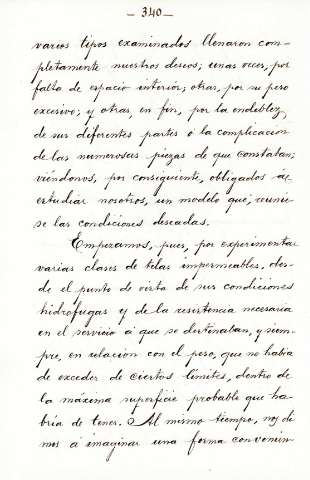 — 340 —
varios tipos examinados llenaron com-
pletamente nuestros deseos; unas veces, por
falta de espacio interior; otras, por su peso
excesivo; y otras, en fin, por la endeblez
de sus diferentes partes o la complicacion
de las numerosas piezas de que constaban;
viéndonos, por consiguiente, obligados de
estudiar nosotros, un modelo que, reunie-
se las condiciones deseadas.
Empezamos, pues, por experimentar
varias clases de telas impermeables, des-
de el punto de vista de sus condiciones
hidrófugas y de la resistencia necesaria
en el servicio á que se destinaban, y siem-
pre, en relacion con el peso, que no habia
de exceder de ciertos límites, dentro de
la máxima superficie probable que ha-
bría de tener. Al mismo tiempo, nos di
mos á imaginar una forma convenien-